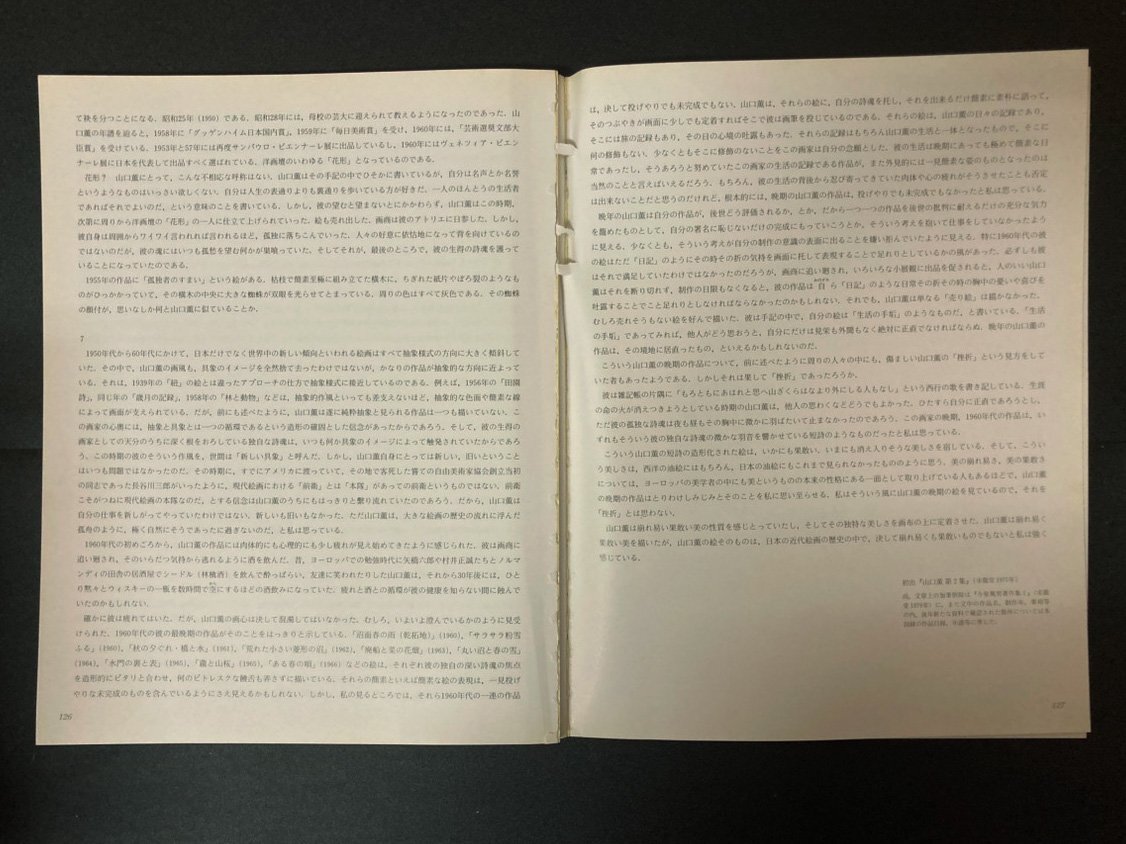 て袂を分つことになる。昭和25年（1950）である。昭和28年には，母校の芸大に迎えられて教えるようになったのであった。山
口薫の年譜を辿ると，1958年に「グッゲンハイム日本国内賞」，1959年に「毎日美術賞」を受け，1960年には，「芸術選奨文部大
臣賞」を受けている。1953年と57年には再度サンパウロ・ビエンナーレ展に出品しているし，1960年にはヴェネツィア・ビエン
ナーレ展に日本を代表して出品すべく選ばれている。洋画壇のいわゆる「花形」となっているのである。
花形？　山口薫にとって，こんな不相応な呼称はない。山口薫はその手記の中でひそかに書いているが，自分は名声とか名誉
というようなものはいっさい欲しくない。自分は人生の表通りよりも裏通りを歩いている方が好きだ。一人のほんとうの生活者
であればそれでよいのだ，という意味のことを書いている。しかし，彼の望むと望まないとにかかわらず，山口薫はこの時期，
次第に周りから洋画壇の「花形」の一人に仕立て上げられていった。絵も売れ出した。画商は彼のアトリエに日参した。しかし，
彼自身は周囲からワイワイ言われれば言われるほど，孤独に落ちこんでいった。人々の好意に依怙地になって背を向けているの
ではないのだが，彼の魂にはいつも孤愁を望む何かが巣喰っていた。そしてそれが，最後のところで，彼の生得の詩魂を護って
いることになっていたのである。
1955年の作品に「孤独者のすまい」という絵がある。枯枝で簡素至極に組み立てた横木に，ちぎれた紙片やぼろ裂のようなも
のがひっかかっていて，その横木の中央に大きな蜘蛛が双眼を光らせてとまっている。周りの色はすべて灰色である。その蜘蛛
の顔付が，思いなしか何と山口薫に似ていることか。
7
1950年代から60年代にかけて，日本だけでなく世界中の新しい傾向といわれる絵画はすべて抽象様式の方向に大きく傾斜して
いた。その中で，山口薫の画風も，具象のイメージを全然捨て去ったわけではないが，かなりの作品が抽象的な方向に近よって
いる。それは，1939年の「紐」の絵とは違ったアプローチの仕方で抽象様式に接近しているのである。例えば，1956年の「田園
詩」，同じ年の「歳月の記録」，1958年の「林と動物」などは，抽象的作風といっても差支えないほど，抽象的な色面や簡素な線
によって画面が支えられている。だが，前にも述べたように，山口薫は遂に純粋抽象と見られる作品は一つも描いていない。こ
の画家の心奥には，抽象と具象とは一つの循環であるという造形の確固とした信念があったからであろう。そして，彼の生得の
画家としての天分のうちに深く根をおろしている独自な詩魂は，いつも何か具象のイメージによって触発されていたからであろ
う。この時期の彼のそういう作風を，世間は「新しい具象」と呼んだ。しかし，山口薫自身にとっては新しい，旧いということ
はいつも問題ではなかったのだ。その時期に，すでにアメリカに渡っていて，その地で客死した嘗ての自由美術家協会創立当初
の同志であった長谷川三郎がいったように，現代絵画における「前衛」とは「本隊」があっての前衛というものではない。前衛
こそがつねに現代絵画の本隊なのだ，とする信念は山口薫のうちにもはっきりと繫り流れていたのであろう。だから，山口薫は
自分の仕事を新しがってやっていたわけではない。新しいも旧いもなかった。ただ山口薫は，大きな絵画の歴史の流れに浮んだ
孤舟のように，極く自然にそうであったに過ぎないのだ，と私は思っている。
1960年代の初めごろから，山口薫の作品には肉体的にも心理的にも少し疲れが見え始めてきたように感じられた。彼は画商に
追い廻され，そのいらだつ気持から逃れるように酒を飲んだ。昔，ヨーロッパでの勉強時代に矢橋六郎や村井正誠たちとノルマ
ンディの田舎の居酒屋でシードル（林檎酒）を飲んで酔っぱらい，友達に笑われたりした山口薫は，それから30年後には，ひと
り黙々とウィスキーの一瓶を数時間で空にするほどの酒飲みになっていた。疲れと酒との循環が彼の健康を知らない間に蝕んで
いたのかもしれない。
確かに彼は疲れていた。だが，山口薫の画心は決して混濁してはいなかった。むしろ，いよいよ澄んでいるかのように見受
けられた。1960年代の彼の最晩期の作品がそのことをはっきりと示している。「沼面春の雨（乾拓地）」(1960)，「サラサラ粉雪
ふる」(1960)，「秋の夕ぐれ・橋と水」(1961)，「荒れた小さい菱形の沼」(1962)，「廃船と菜の花畑」(1963)，「丸い沼と春の雪」
(1964)，「水門の裏と表」(1965)，「龍と山桜」(1965)，「ある春の唄」(1966) などの絵は，それぞれ彼の独自の深い詩魂の焦点
を造形的にピタリと合わせ，何のピトレスクな饒舌も弄さずに描いている。それらの簡素といえば簡素な絵の表現は，一見投げ
やりな未完成のものを含んでいるようにさえ見えるかもしれない。しかし，私の見るところでは，それら1960年代の一連の作品
126
は，決して投げやりでも未完成でもない。山口薫は，それらの絵に，自分の詩魂を托し，それを出来るだけ簡素に素朴に語って，
そのつぶやきが画面に少しでも定着すればそこで彼は画筆を投じているのである。それらの絵は，山口薫の日々の記録であり，
そこには旅の記録もあり，その日の心境の吐露もあった。それらの記録はもちろん山口薫の生活と一体となったもので，そこに
何の修飾もない。少なくともそこに修飾のないことをこの画家は自分の念願とした。彼の生活は晩期にあっても極めて簡素な日
常であったし，そうあろうと努めていたこの画家の生活の記録である作品が，また外見的には一見簡素な姿のものとなったのは
当然のことと言えばいえるだろう。もちろん，彼の生活の背後から忍び寄ってきていた肉体や心の疲れがそうさせたことも否定
出来ないことだとは思うのだけれど，根本的には，晩期の山口薫の作品は，投げやりでも未完成でもなかったと私は思っている。
晩年の山口薫は自分の作品が，後世どう評価されるか，とか，だから一つ一つの作品を後世の批判に耐えうるだけの充分な気力
を籠めたものとして，自分の署名に恥じないだけの完成にもっていこうとか，そういう考えを抱いて仕事をしていなかったよう
に見える。少なくとも，そういう考えが自分の制作の意識の表面に出ることを嫌い拒んでいたように見える。特に1960年代の彼
の絵はただ「日記」のようにその時その折の気持を画面に托して表現することで足りとしているかの風があった。必ずしも彼
はそれで満足していたわけではなかったのだろうが，画商に追い廻され，いろいろな小展観に出品を促されると，人のいい山口
薫はそれを断り切れず，制作の日限もなくなると，彼の作品は自ら「日記」のような日常その折その時の胸中の憂いや喜びを
吐露することでこと足りとしなければならなかったのかもしれない。それでも，山口薫は単なる「売り絵」は描かなかった。
むしろ売れそうもない絵を好んで描いた。彼は手記の中で，自分の絵は「生活の手垢」のようなものだ，と書いている。「生活
の手垢」であってみれば，他人がどう思おうと，自分にだけは見栄も外聞もなく絶対に正直でなければならぬ。晩年の山口薫の
作品は，その境地に居直ったもの，といえるかもしれないのだ。
こういう山口薫の晩期の作品について，前に述べたように周りの人々の中にも，傷ましい山口薫の「挫折」という見方をして
いた者もあったようである。しかしそれは果して「挫折」であったろうか。
彼は雑記帳の片隅に「もろともにあはれと思へ山ざくらはなより外にしる人もなし」という西行の歌を書き記している。生涯
の命の火が消えつきようとしている時期の山口薫は，他人の思わくなどどうでもよかった。ひたすら自分に正直であろうとし，
ただ彼の孤独な詩魂は夜も昼もその胸中に微かに羽ばたいて止まなかったのであろう。この画家の晩期，1960年代の作品は，い
ずれもそういう彼の独自な詩魂の微かな羽音を響かせている短詩のようなものだったと私は思っている。
こういう山口薫の短詩の造形化された絵は，いかにも果敢い，いまにも消え入りそうな美しさを宿している。そして，こうい
う美しさは，西洋の油絵にはもちろん，日本の油絵にもこれまで見られなかったもののように思う。美の崩れ易さ，美の果敢さ
については，ヨーロッパの美学者の中にも美というものの本来の性格にある一面として取り上げている人もあるほどで，山口薫
の晩期の作品はとりわけしみじみとそのことを私に思い至らせる。私はそういう風に山口薫の晩期の絵を見ているので，それを
「挫折」とは思わない。
山口薫は崩れ易い果敢い美の性質を感じとっていたし，そしてその独特な美しさを画布の上に定着させた。山口薫は崩れ易く
果敢い美を描いたが，山口薫の絵そのものは，日本の近代絵画の歴史の中で，決して崩れ易くも果敢いものでもないと私は強く
感じている。
初出『山口薫 第2集』（求龍堂 1975年）
127